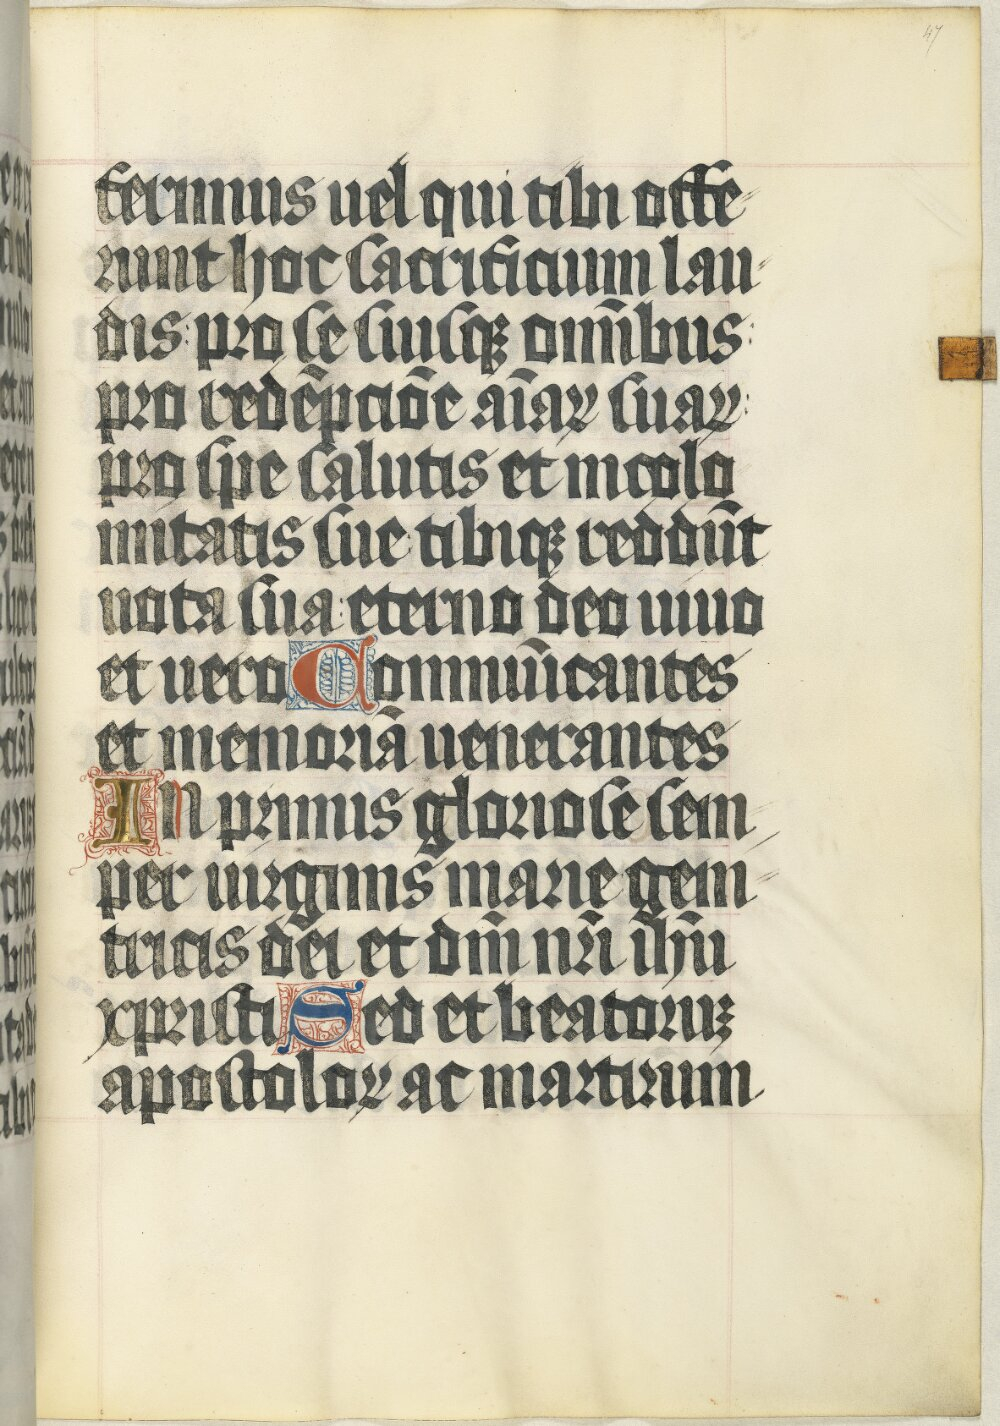 47
ferimus uel qui tibi offe
runt hoc sacrificium lau
dis: pro se suisqꝫ om̄ibus:
pro redēpciōe aīaꝝ suaꝝ:
pro spe salutis et incolo
mitatis sue: tibiqꝫ reddūt
uota sua: eterno deo uiuo
et uero Commūicantes
et memoriā uenerantes
In primis gloriose sem
per uirginis marie geni
tricis dei et dn̄i nr̄i ih̄u
xpristi Sed et beatoruꝫ
apostoloꝝ ac martirum